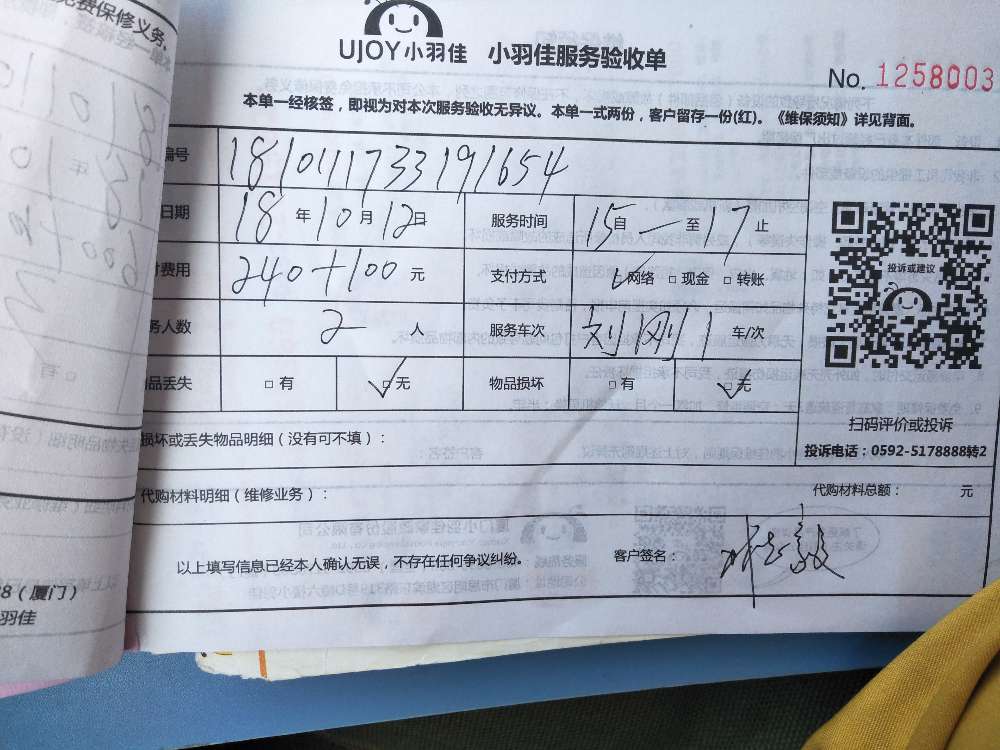 免费保修义务。
UJOY小羽佳 小羽佳服务验收单
No. 1258003
本单一经核签，即视为对本次服务验收无异议。本单一式两份，客户留存一份(红)。《维保须知》详见背面。
编号 181011733191654
日期 18年10月12日 服务时间 15自一至17止
费用 240+100元 支付方式 网络 现金 转账
务人数 2人 服务车次 刘刚1车/次
品丢失 有 无 物品损坏 有 无
投诉或建议
扫码评价或投诉
投诉电话：0592-5178888转2
损坏或丢失物品明细（没有可不填）：
代购材料明细（维修业务）： 代购材料总额： 元
以上填写信息已经本人确认无误，不存在任何争议纠纷。 客户签名：
8（厦门）
羽佳